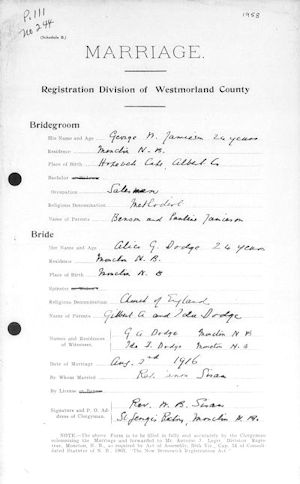 P. 111
No 244
1958
(Schedule B.)
MARRIAGE.
Registration Division of Westmorland County
Bridegroom
His Name and Age George W. Jamieson 24 years
Residence Moncton N.B.
Place of Birth Albert Co
Bachelor
Occupation Salesman
Religious Denomination Methodist
Name of Parents Benson and Jamieson
Bride
Her Name and Age Alice G. Dodge 24 years
Residence Moncton N.B.
Place of Birth Moncton N.B
Spinster
Religious Denomination Church of England
Name of Parents Gilbert A and Ida Dodge
Names and Residences of Witnesses.
G A Dodge Moncton N B
Ida Dodge Moncton N.B
Date of Marriage Aug. 1916
By Whom Married Rev. Sisam
By License
Signature and P. O. Address of Clergyman.
Rev. W. B. Sisam
St Georges Moncton N.B.
NOTE.—The above Form is to be filled in fully and accurately by the Clergyman
solemnizing the Marriage and forwarded to Mr. Antoine J. Leger, Division Registrar,
Moncton, N. B., as required by Act of Assembly, Cap. of Consolidated
Statutes of N. B. 1903. "The New Brunswick Registration Act"